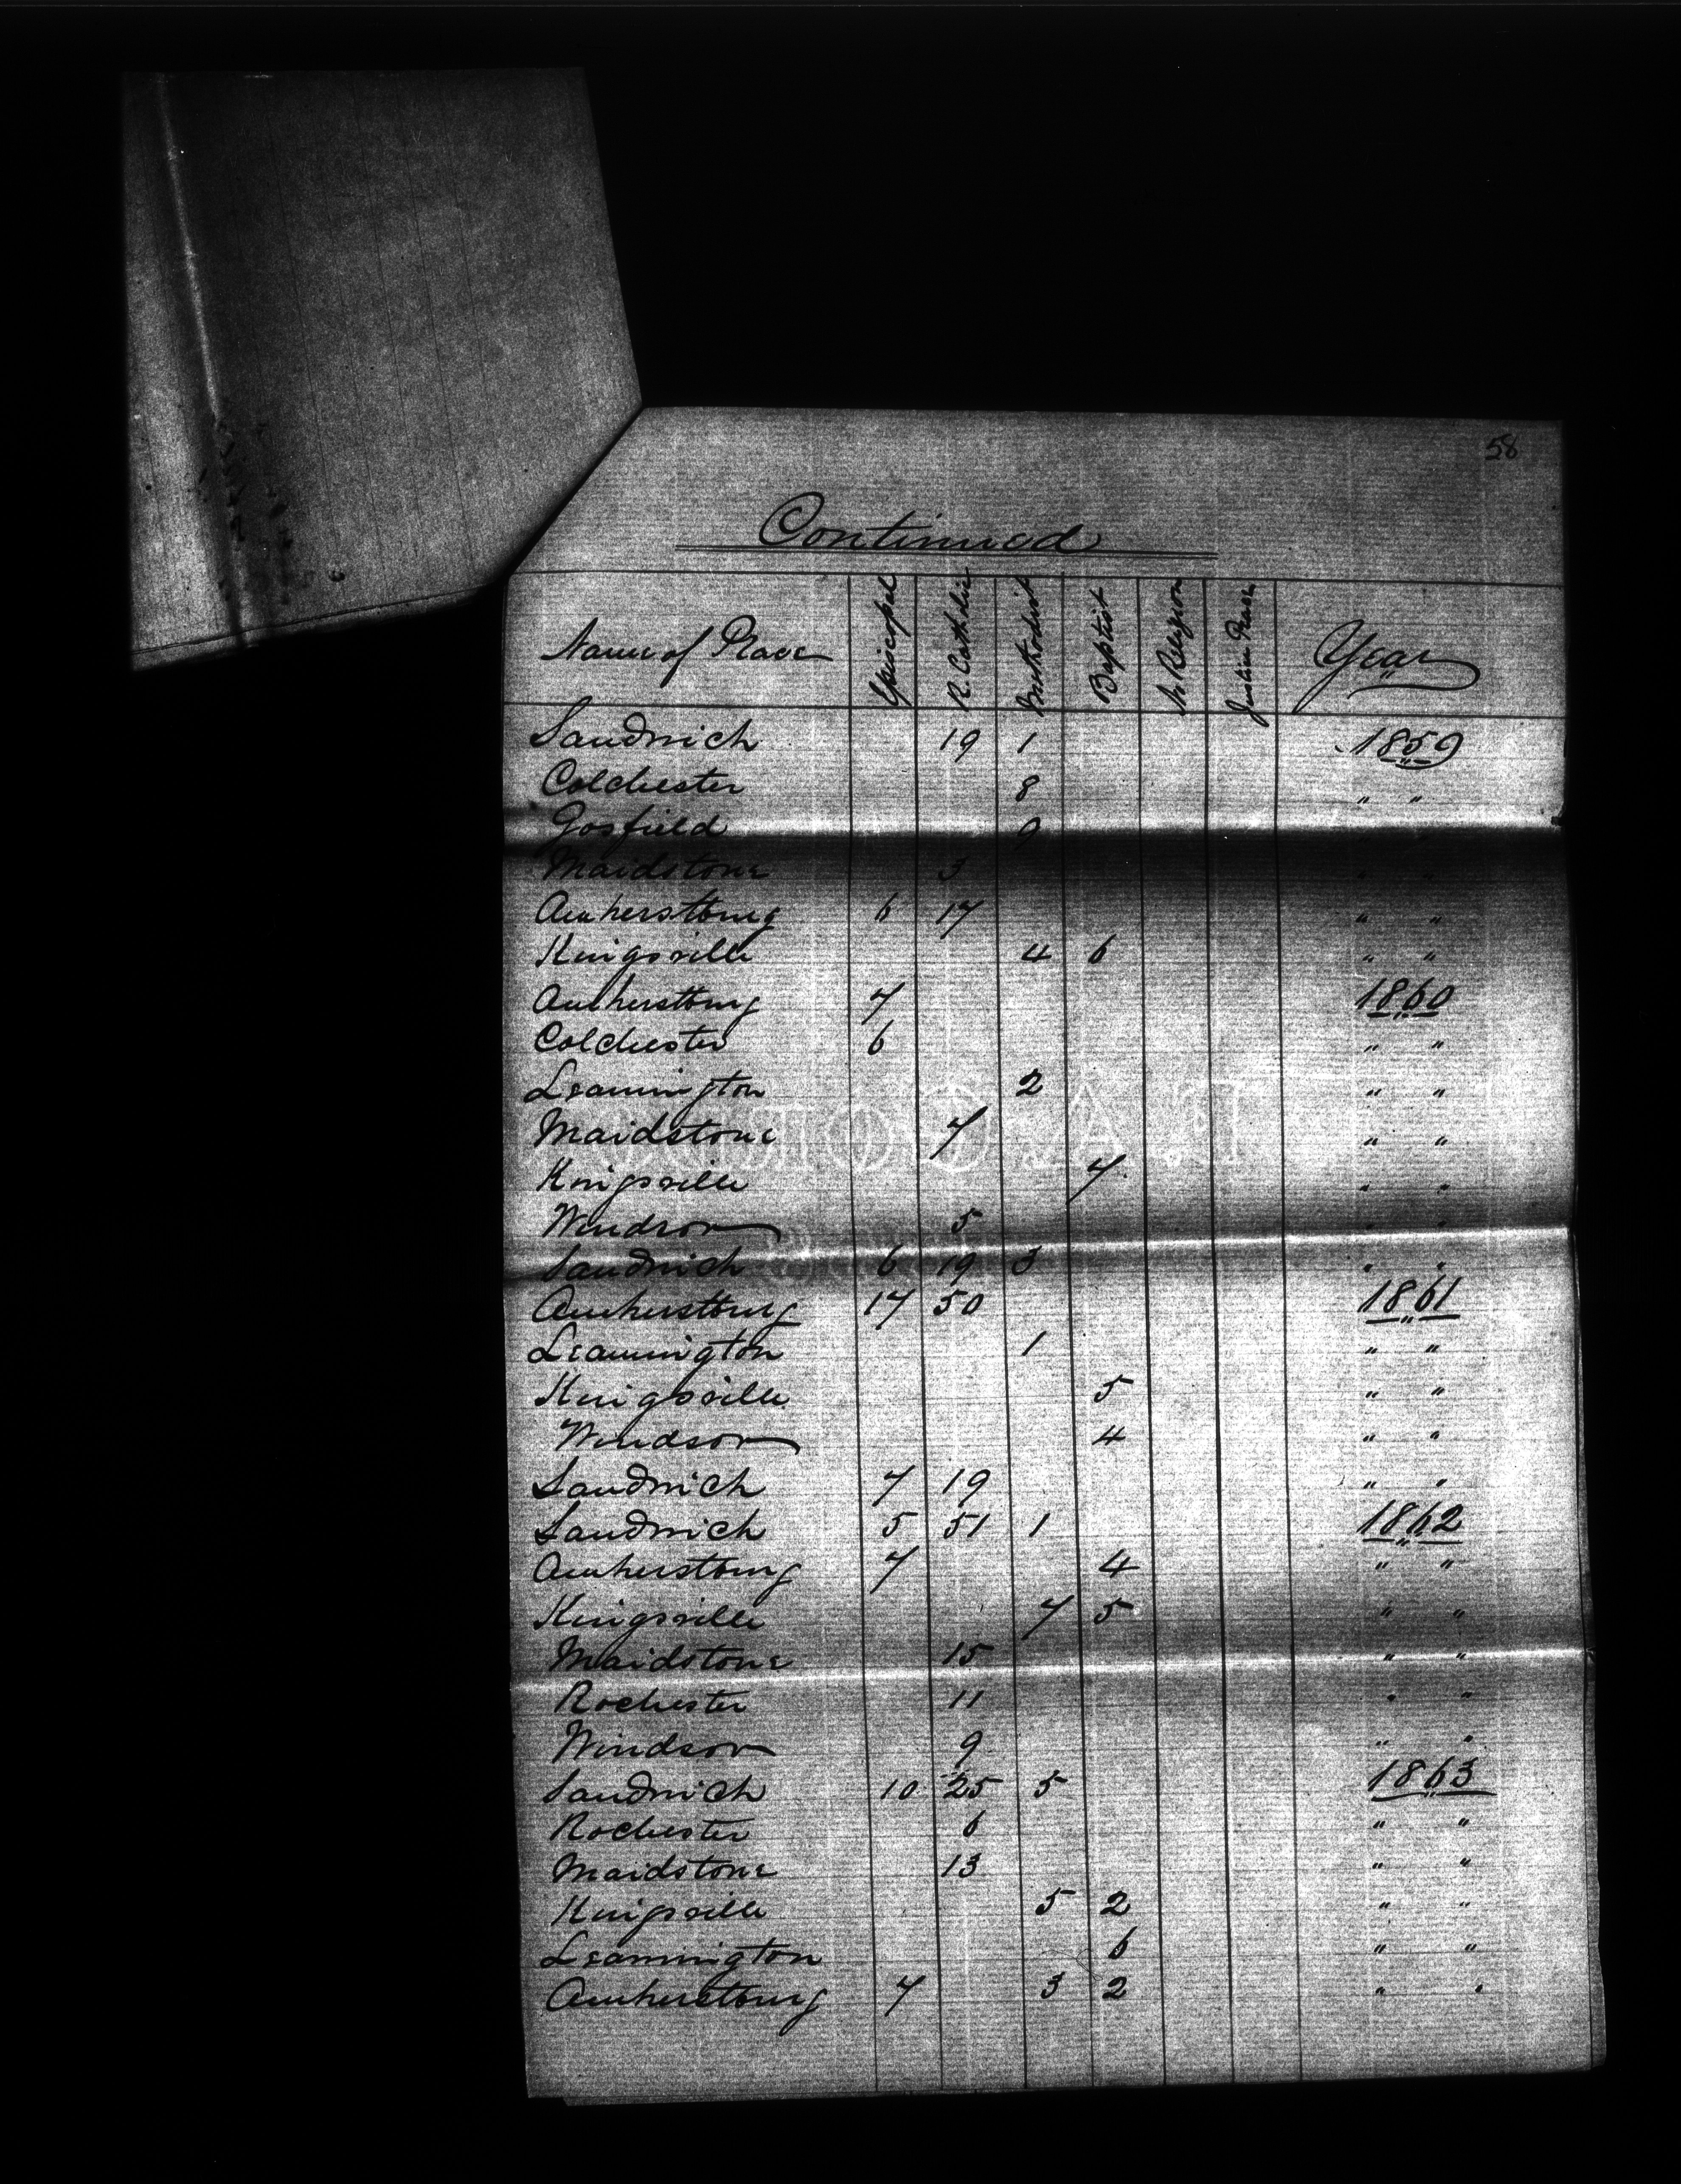 58
Continued
Name of Place Episcopal R. Catholic Methodist Baptist No Religion Justice Peace Year
Sandwich 19 1 1859
Colchester 8 " "
Gosfield 9 " "
Maidstone 3 " "
Amherstburg 6 17 " "
Kingsville 4 6 " "
Amherstburg 7 1860
Colchester 6 " "
Leamington 2 " "
Maidstone 7 " "
Kingsville 7 " "
Windsor 5 " "
Sandwich 6 19 3 " "
Amherstburg 17 50 1861
Leamington 1 " "
Kingsville 5 " "
Windsor 4 " "
Sandwich 7 19 " "
Sandwich 5 51 1 1862
Amherstburg 7 4 " "
Kingsville 7 5 " "
Maidstone 15 " "
Rochester 11 " "
Windsor 9 " "
Sandwich 10 25 5 1863
Rochester 6 " "
Maidstone 13 " "
Kingsville 5 2 " "
Leamington 6 " "
Amherstburg 7 3 2 " "